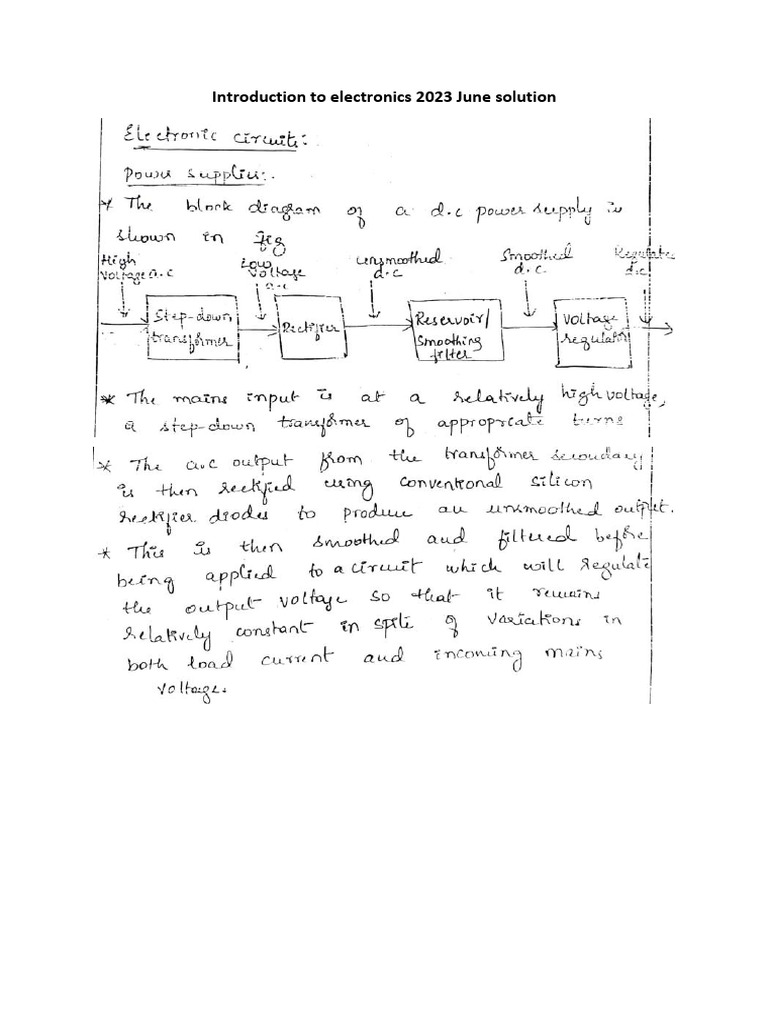 Introduction to electronics 2023 June solution
Electronic circuits:
Power supplies:.
* The block diagram of a d.c power supply is
shown in fig
High voltage a.c
Low voltage a.c
unsmoothed d.c
Smoothed d.c.
Regulated d.c
Step-down transformer
Rectifier
Reservoir/ smoothing filter
Voltage regulator
* The mains input is at a relatively high voltage,
a step-down transformer of appropriate turns
* The a.c output from the transformer secondary
is then rectified using conventional silicon
rectifier diodes to produce an unsmoothed output.
* This is then smoothed and filtered before
being applied to a circuit which will regulate
the output voltage so that it remains
relatively constant in spite of variations in
both load current and incoming mains
voltage.